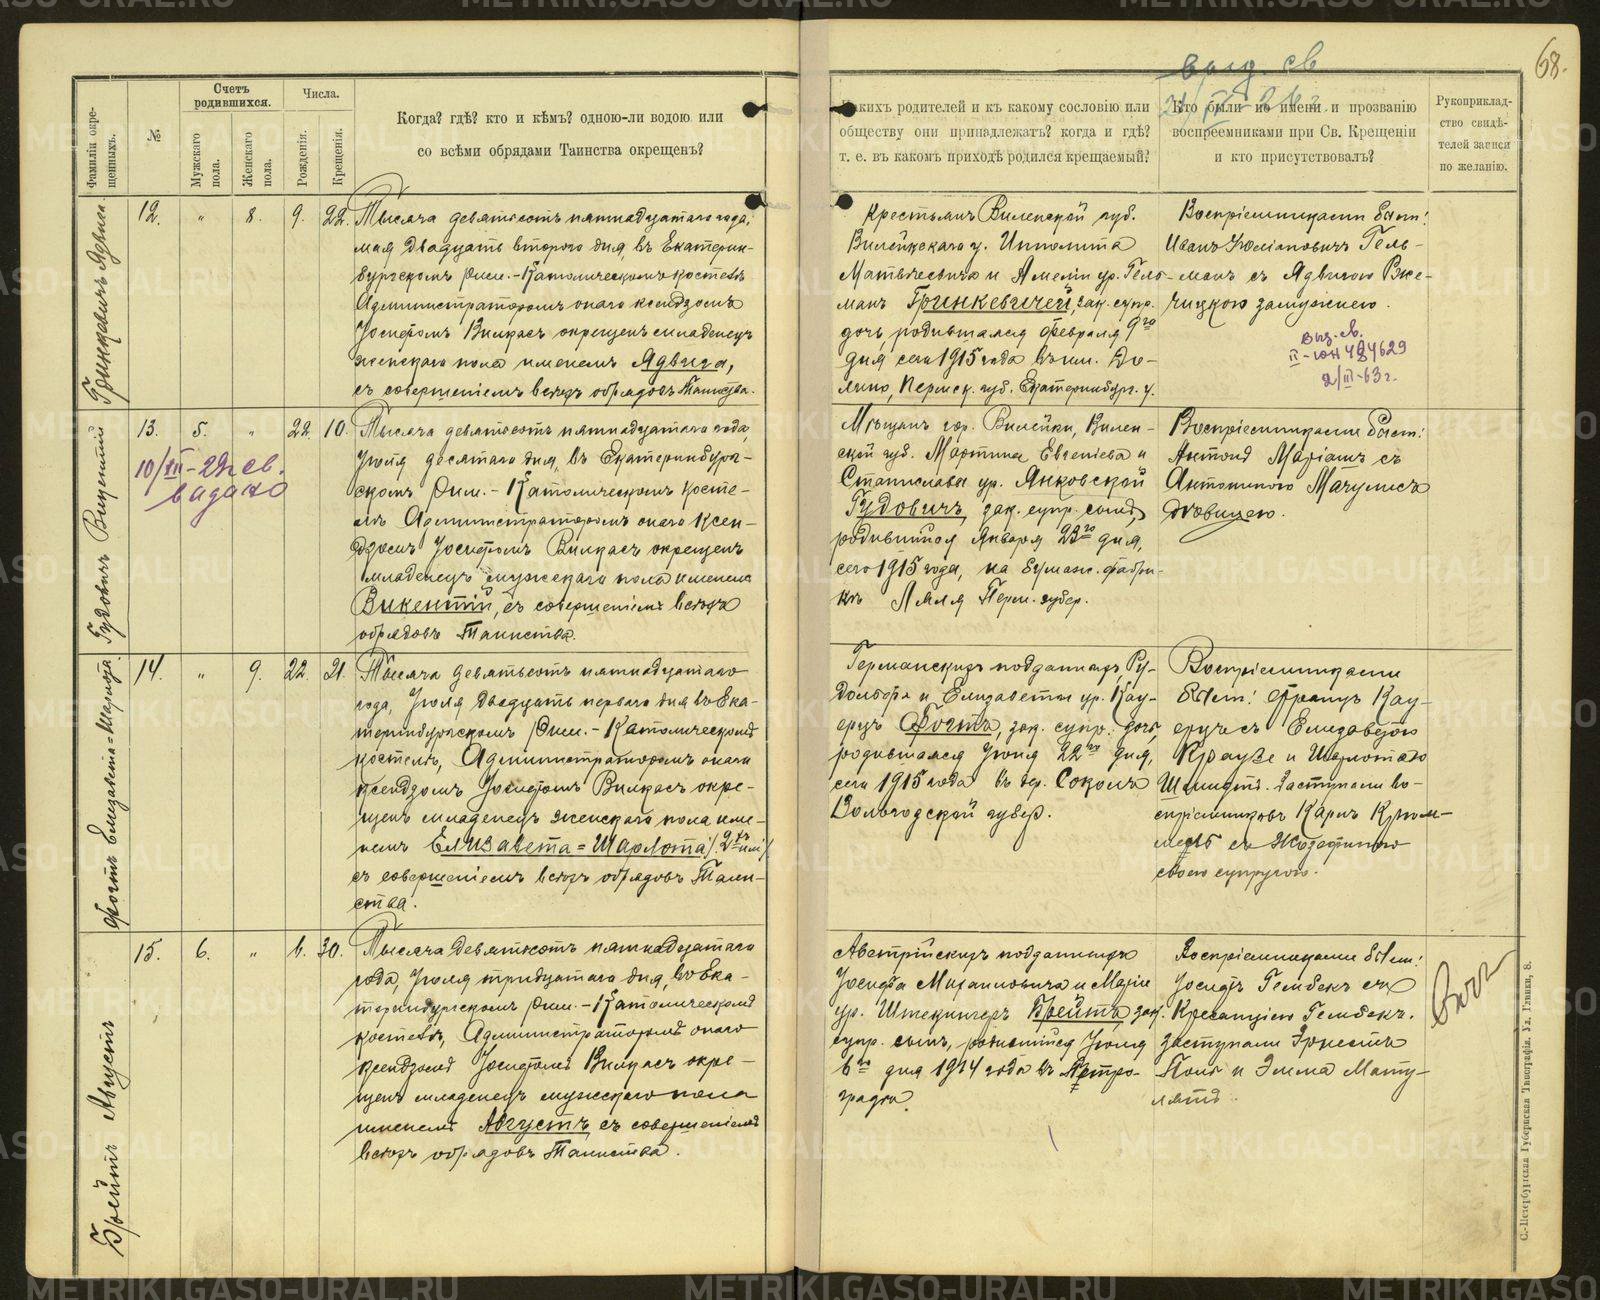 68.
выд. св
Фамиліи окре-
щенныхъ.
№
Счетъ
родившихся.
Мужскаго
пола.
Женскаго
пола.
Числа.
Рожденія.
Крещенія.
Когда? гдѣ? кто и кѣмъ? одною-ли водою или
со всѣми обрядами Таинства окрещенъ?
Какихъ родителей и къ какому сословію или
обществу они принадлежатъ? когда и гдѣ?
т. е. въ какомъ приходѣ родился крещаемый?
Кто были по имени и прозванію
воспреемниками при Св. Крещеніи
и кто присутствовалъ?
Рукоприклад-
ство свидѣ-
телей записи
по желанію.
Гринкевичъ Ядвига
12. " 8. 9. 22.
Тысяча девятьсотъ пятнадцатаго года,
мая двадцать второго дня, въ Екатерин-
бургскомъ Рим.-Католическомъ костелѣ
Администраторомъ онаго ксендзомъ
Іосифомъ Вилкасъ окрещенъ младенецъ
женскаго пола именемъ Ядвига,
съ совершеніемъ всѣхъ обрядовъ Таинства.
Крестьянъ Виленской губ.
Вилейскаго у. Ипполита
Матвѣевича и Амеліи ур. Гель-
манъ Гринкевичей, зак. супр.
дочь, родившаяся Февраля 9го
дня сего 1915 года въ им. До-
лино, Пермск. губ. Екатеринбург. у.
Воспріемниками были:
Иванъ Юліановичъ Гель-
манъ съ Ядвигою Рже-
чицкою замужнею.
выд. св.
II-юн 484629
2/III-63г.
Гудовичъ Викентій
13. 5. " 22. 10.
10/XII-29г св.
выдано
Тысяча девятьсотъ пятнадцатаго года,
Іюля десятаго дня, въ Екатеринбург-
скомъ Рим.-Католическомъ косте-
лѣ Администраторомъ онаго ксен-
дзомъ Іосифомъ Вилкасъ окрещенъ
младенецъ мужескаго пола именемъ
Викентій, съ совершеніемъ всѣхъ
обрядовъ Таинства.
Мѣщанъ гор. Вилейки, Вилен-
ской губ. Мартина Евгеніева и
Станиславы ур. Янковской
Гудовичъ, зак. супр. сынъ,
родившійся Января 22го дня,
сего 1915 года, на бумаж. фабри-
кѣ Ляля Перм. губер.
Воспріемниками были:
Антонъ Маріанъ съ
Антониною Мачулисъ
вдовицею.
Фогтъ Елизавета=Шарлота.
14. " 9. 22. 21.
Тысяча девятьсотъ пятнадцатаго
года, Іюля двадцать перваго дня въ Ека-
теринбургскомъ Рим.-Католическомъ
костелѣ, Администраторомъ онаго
ксендзомъ Іосифомъ Вилкасъ окре-
щенъ младенецъ женскаго пола име-
немъ Елизавета=Шарлота /2хъ им./
съ совершеніемъ всѣхъ обрядовъ Таин-
ства.
Германскихъ подданныхъ, Ру-
дольфа и Елизаветы ур. Кау-
ерцъ Фогтъ, зак. супр. дочь,
родившаяся Іюня 22го дня,
сего 1915 года въ дер. Соколъ
Вологодской губер.
Воспріемниками
были: Францъ Кау-
ерцъ съ Елизаветою
Краузе и Шарлотою
Шмидтъ. Заступали во-
спріемниковъ Карлъ
съ Жозефиною
своею супругою.
Брейтъ Августъ
15. 6. " 6. 30.
Тысяча девятьсотъ пятнадцатаго
года, Іюля тридцатаго дня, въ Ека-
теринбургскомъ Рим.-Католическомъ
костелѣ, Администраторомъ онаго
ксендзомъ Іосифомъ Вилкасъ окре-
щенъ младенецъ мужескаго пола
именемъ Августъ, съ совершеніемъ
всѣхъ обрядовъ Таинства.
Австрійскихъ подданныхъ
Іосифа Михаиловича и Маріи
ур. Штекингеръ Брейтъ, зак.
супр. сынъ, родившійся Іюля
6го дня 1914 года въ Петро-
градѣ.
Воспріемниками были:
Іосифъ Гембекъ съ
Кресанціею Гембекъ.
заступали Эрнестъ
Поль и Эмма
С.-Петербургская Губернская Типографія. Ул. Глинки, 8.
METRIKI.GASO-URAL.RU